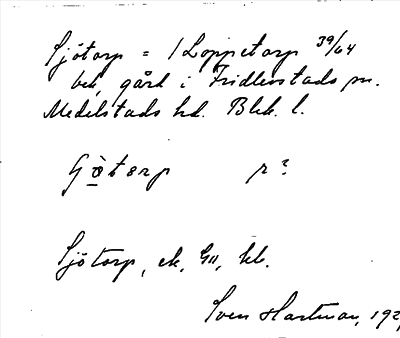 Sjötorp = 1 Loppetorp 39/64
bek, gård i Fridlevstads sn.
Medelstads hd. Blek. l.
Götorp r?
Sjötorp, ek, Gll, kk.
Sven Hartman, 192